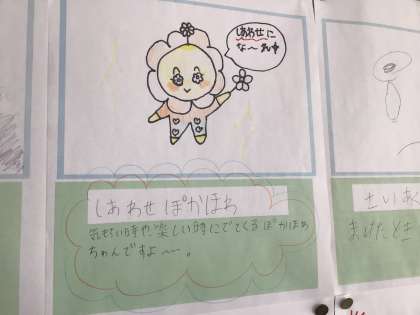 しあわせに
な〜れ
しあわせ ぽかほわ
気もちい時や楽しい時にでてくるぽかほわ
ちゃんですよ〜。
さいあく
まけたとき